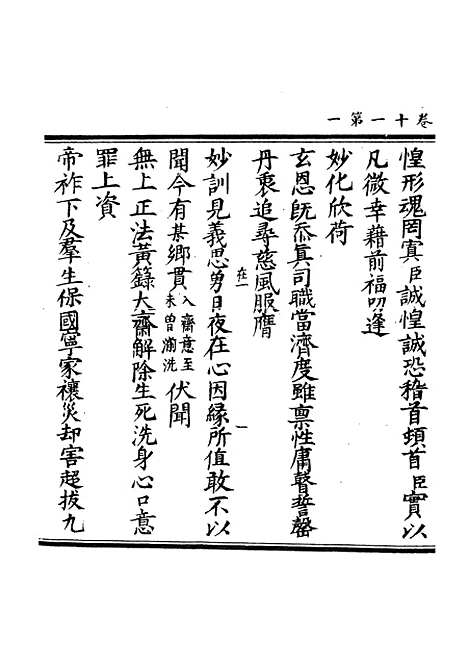 卷十一第一
惶形魂罔寘臣誠惶誠恐稽首頓首臣實以
凡微幸藉前福叨逢
妙化欣荷
玄恩既忝真司職當濟度雖禀性庸瞽誓罄
丹衷追尋慈風服膺
妙訓見義思勇日夜在心因緣所值敢不以
聞今有某鄉貫入齋意至未曾瀏洗伏聞
無上正法黃籙大齋解除生死洗身心口意
罪上資
帝祚下及羣生保國寧家禳災却害超拔九
在一
一